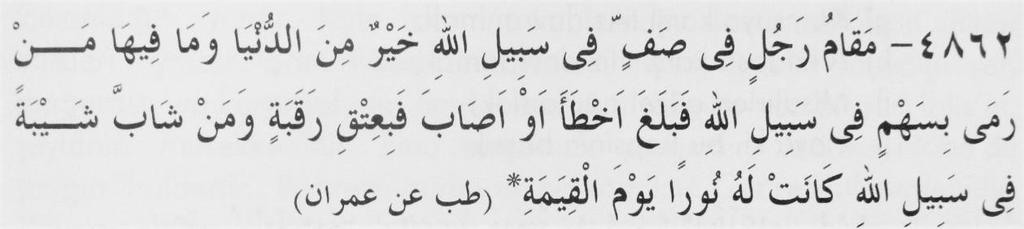 ٤٨٦٢- مَقَامُ رَجُلٍ فِى صَفٍّ فِى سَبِيلِ اللهِ خَيْرٌ مِنَ الدُّنْيَا وَمَا فِيهَا مَـــنْ
رَمَى بِسَهْمٍ فِى سَبِيلِ اللهِ فَبَلَغَ اَخْطَأَ اَوْ اَصَابَ فَبِعِتْقِ رَقَبَةٍ وَمَنْ شَابَّ شَـــيْبَةً
فِى سَبِيلِ اللهِ كَانَتْ لَهُ نُورًا يَوْمَ الْقِيَمَةِ* (طب عن عمران)